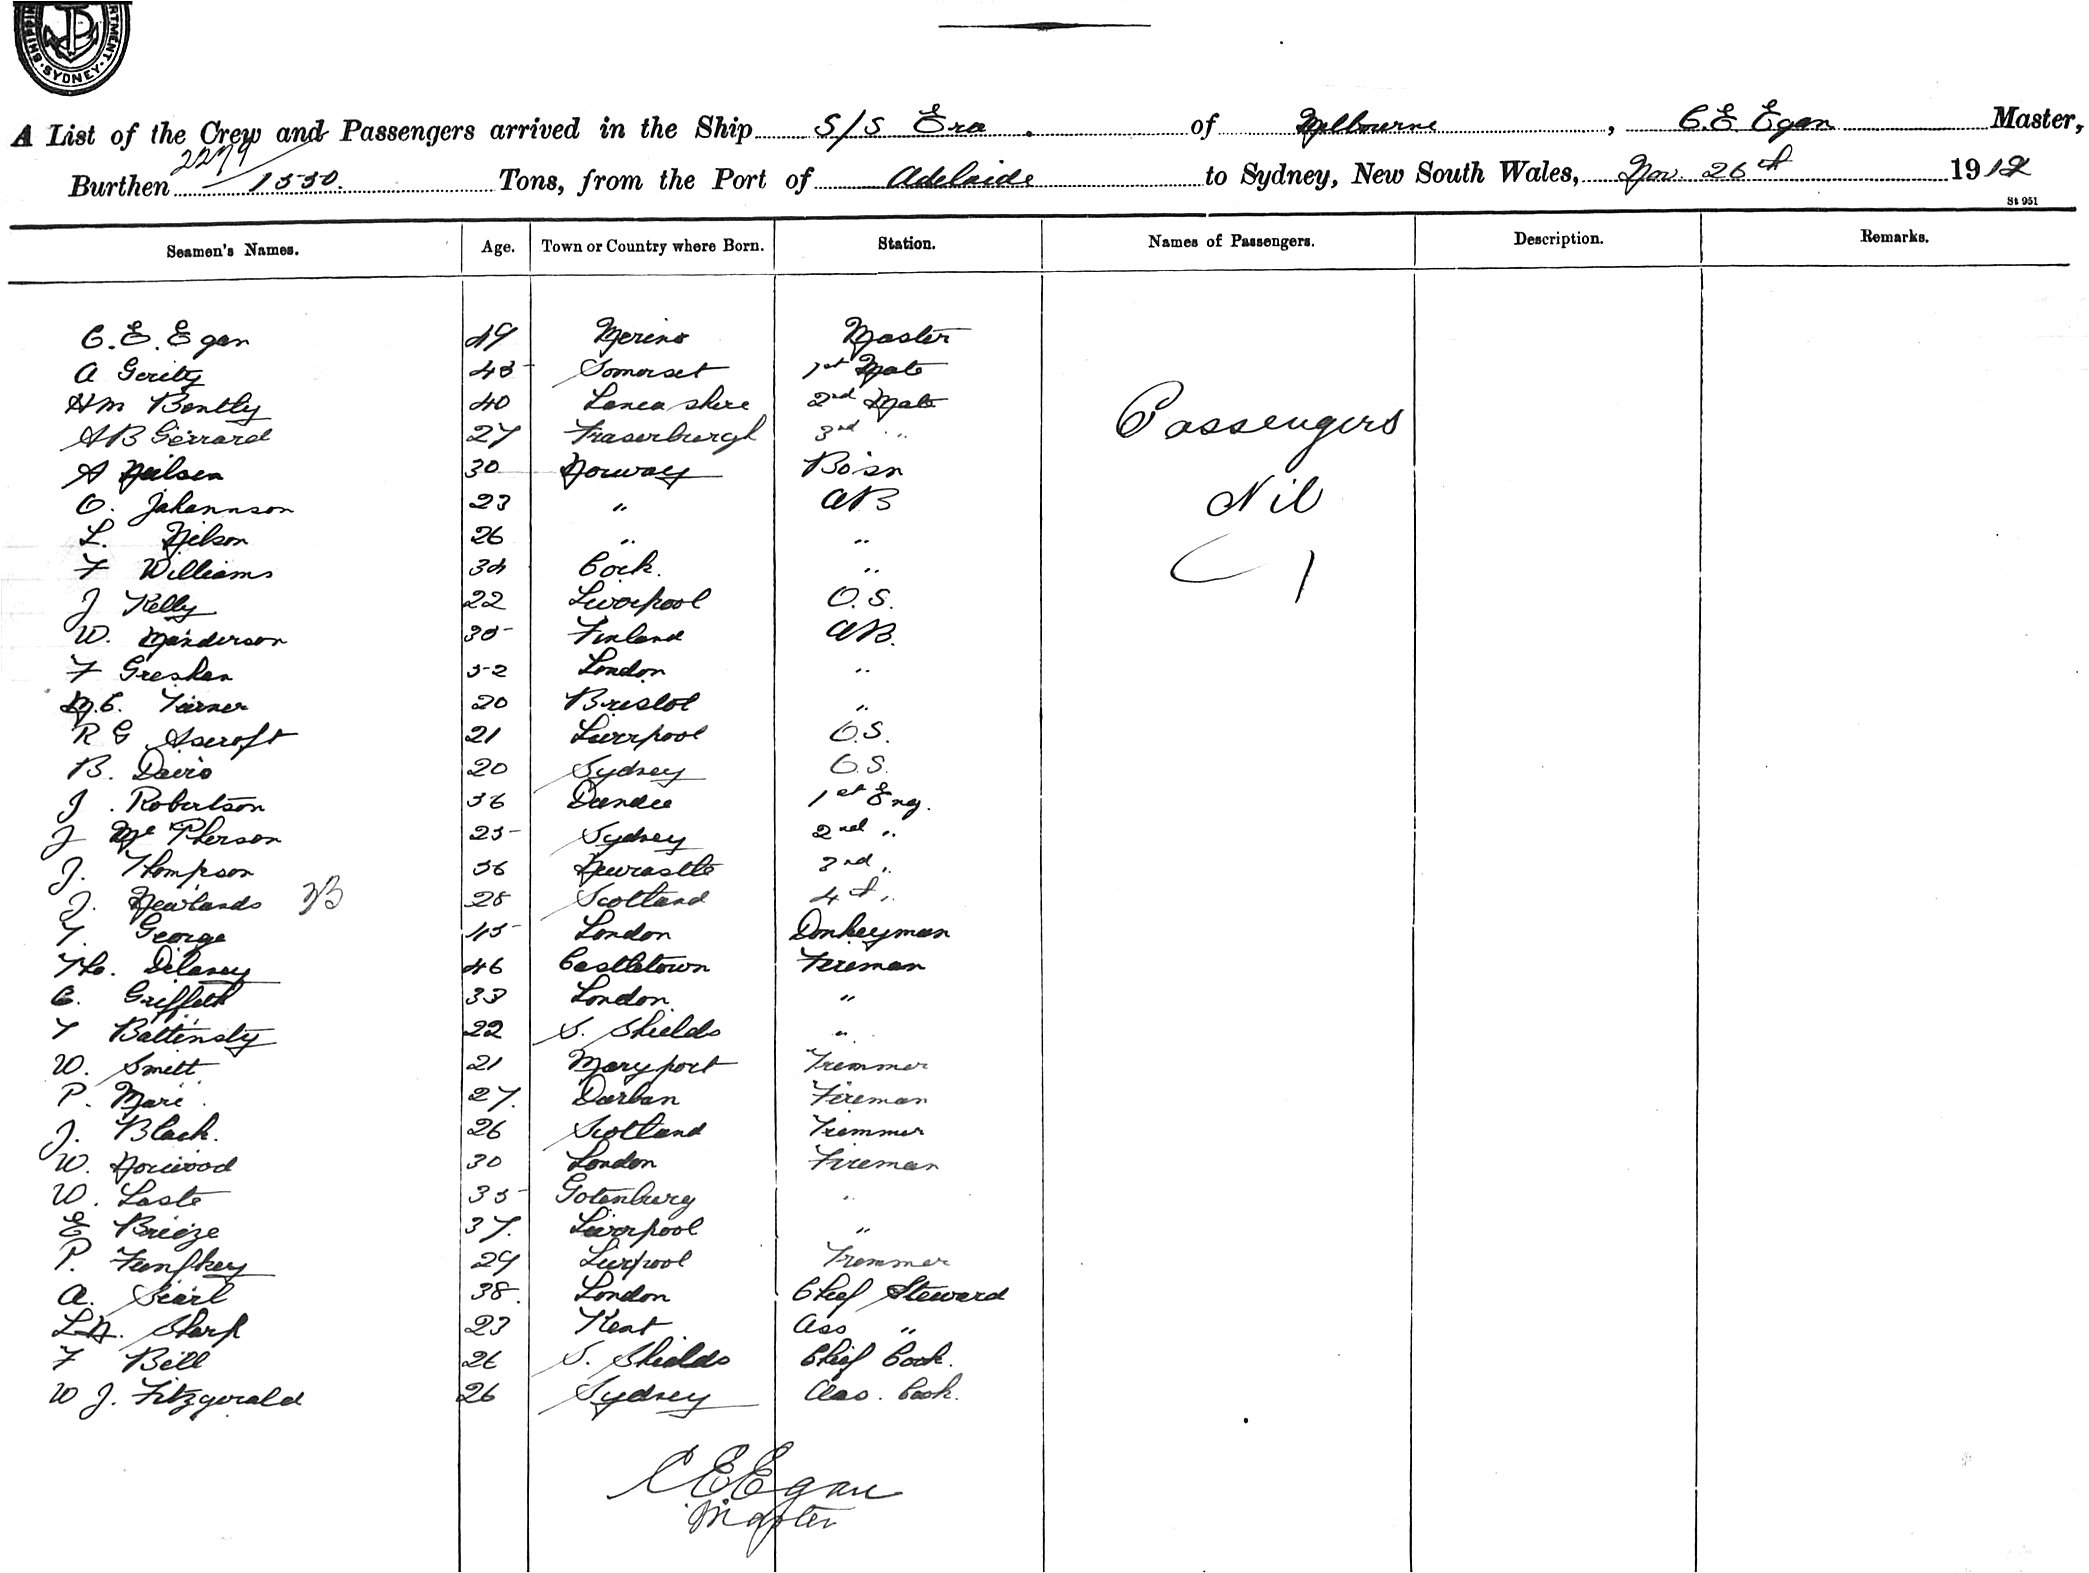 SHIPPING DEPARTMENT SYDNEY
A List of the Crew and Passengers arrived in the Ship S/S Era of Melbourne, C.E Egan Master,
2279
Burthen 1550. Tons, from the Port of Adelaide to Sydney, New South Wales, Nov. 26th 1912
St 951
Seamen's Names. Age. Town or Country where Born. Station. Names of Passengers. Description. Remarks.
C. E. Egan 49 Merino Master
A Gerity 45 Somerset 1st Mate
HM Bently 40 Lancashire 2nd Mate
AB Gerrard 27 Fraserburgh 3rd "
Passengers
A Neilsen 30 Norway Bo'sn
O. Johannson 23 " AB
Nil
L. Nilson 26 " "
F Williams 34 Cork. "
J Kelly 22 Liverpool O.S.
W. Manderson 35 Finland AB.
F Greshan 52 London "
M.C. Turner 20 Bristol "
R G Ascroft 21 Liverpool O.S.
B. Davis 20 Sydney O.S.
J. Robertson 36 Dundee 1st Eng.
J McPherson 25 Sydney 2nd "
J. Thompson 36 Newcastle 3rd "
J. Newlands 28 Scotland 4th "
T. George 45 London Donkeyman
Tho. Delaney 46 Castletown Fireman
C. Griffeth 33 London "
T Battensty 22 S. Shields "
W. Smitt 21 Maryport Trimmer
P. Mari 27. Durban Fireman
J. Black. 26 Scotland Trimmer
W. Norwood 30 London Fireman
W. Laste 35 Gotenburg "
E Brieze 37. Liverpool "
P. 29 Liverpool Trimmer
A. Searl 38. London Chief Steward
L.N. Sharp 23 Kent Ass "
F Bell 26 S. Shields Chief Cook.
W J. Fitzgerald 26 Sydney Ass. Cook.
C E Egan
Master